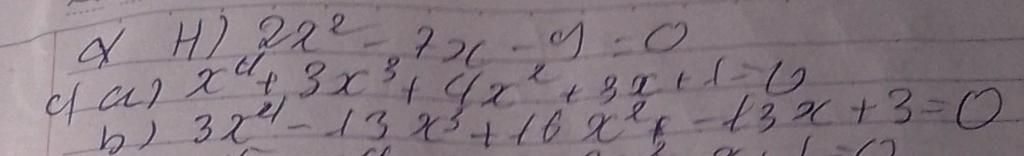 α H) 2x² - 7x - 9 = 0
d a) x⁴ + 3x³ + 4x² + 3x + 1 = 0
b) 3x⁴ - 13x³ + 16x² - 13x + 3 = 0